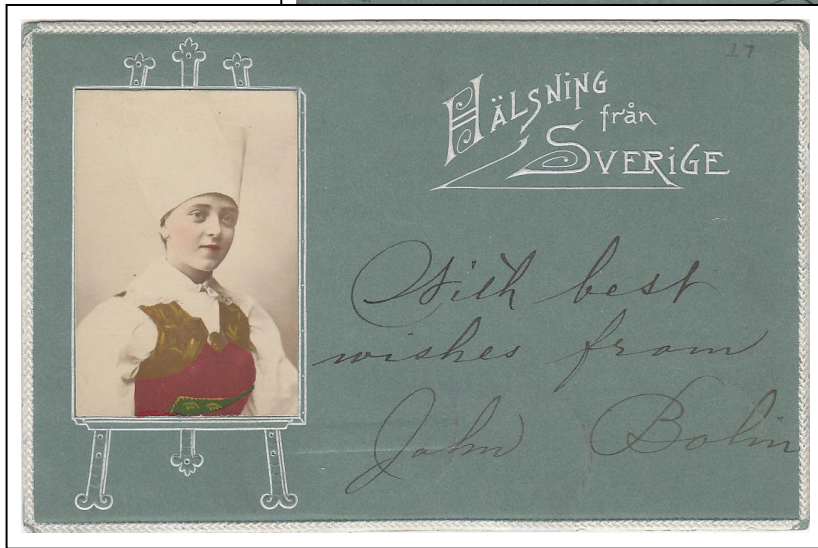 HÄLSNING
från
SVERIGE
With best
wishes from
John Bolin